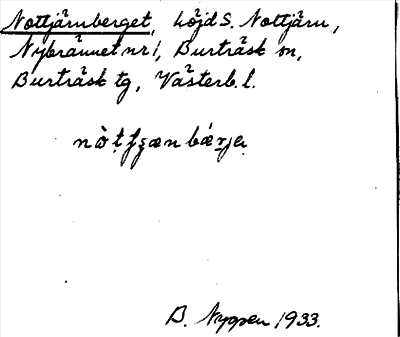 Nottjärnberget, höjd S. Nottjärn,
Nybrännet nr 1, Burträsk sn,
Burträsk tg, Västerb. l.
B. Nyqpen 1933.